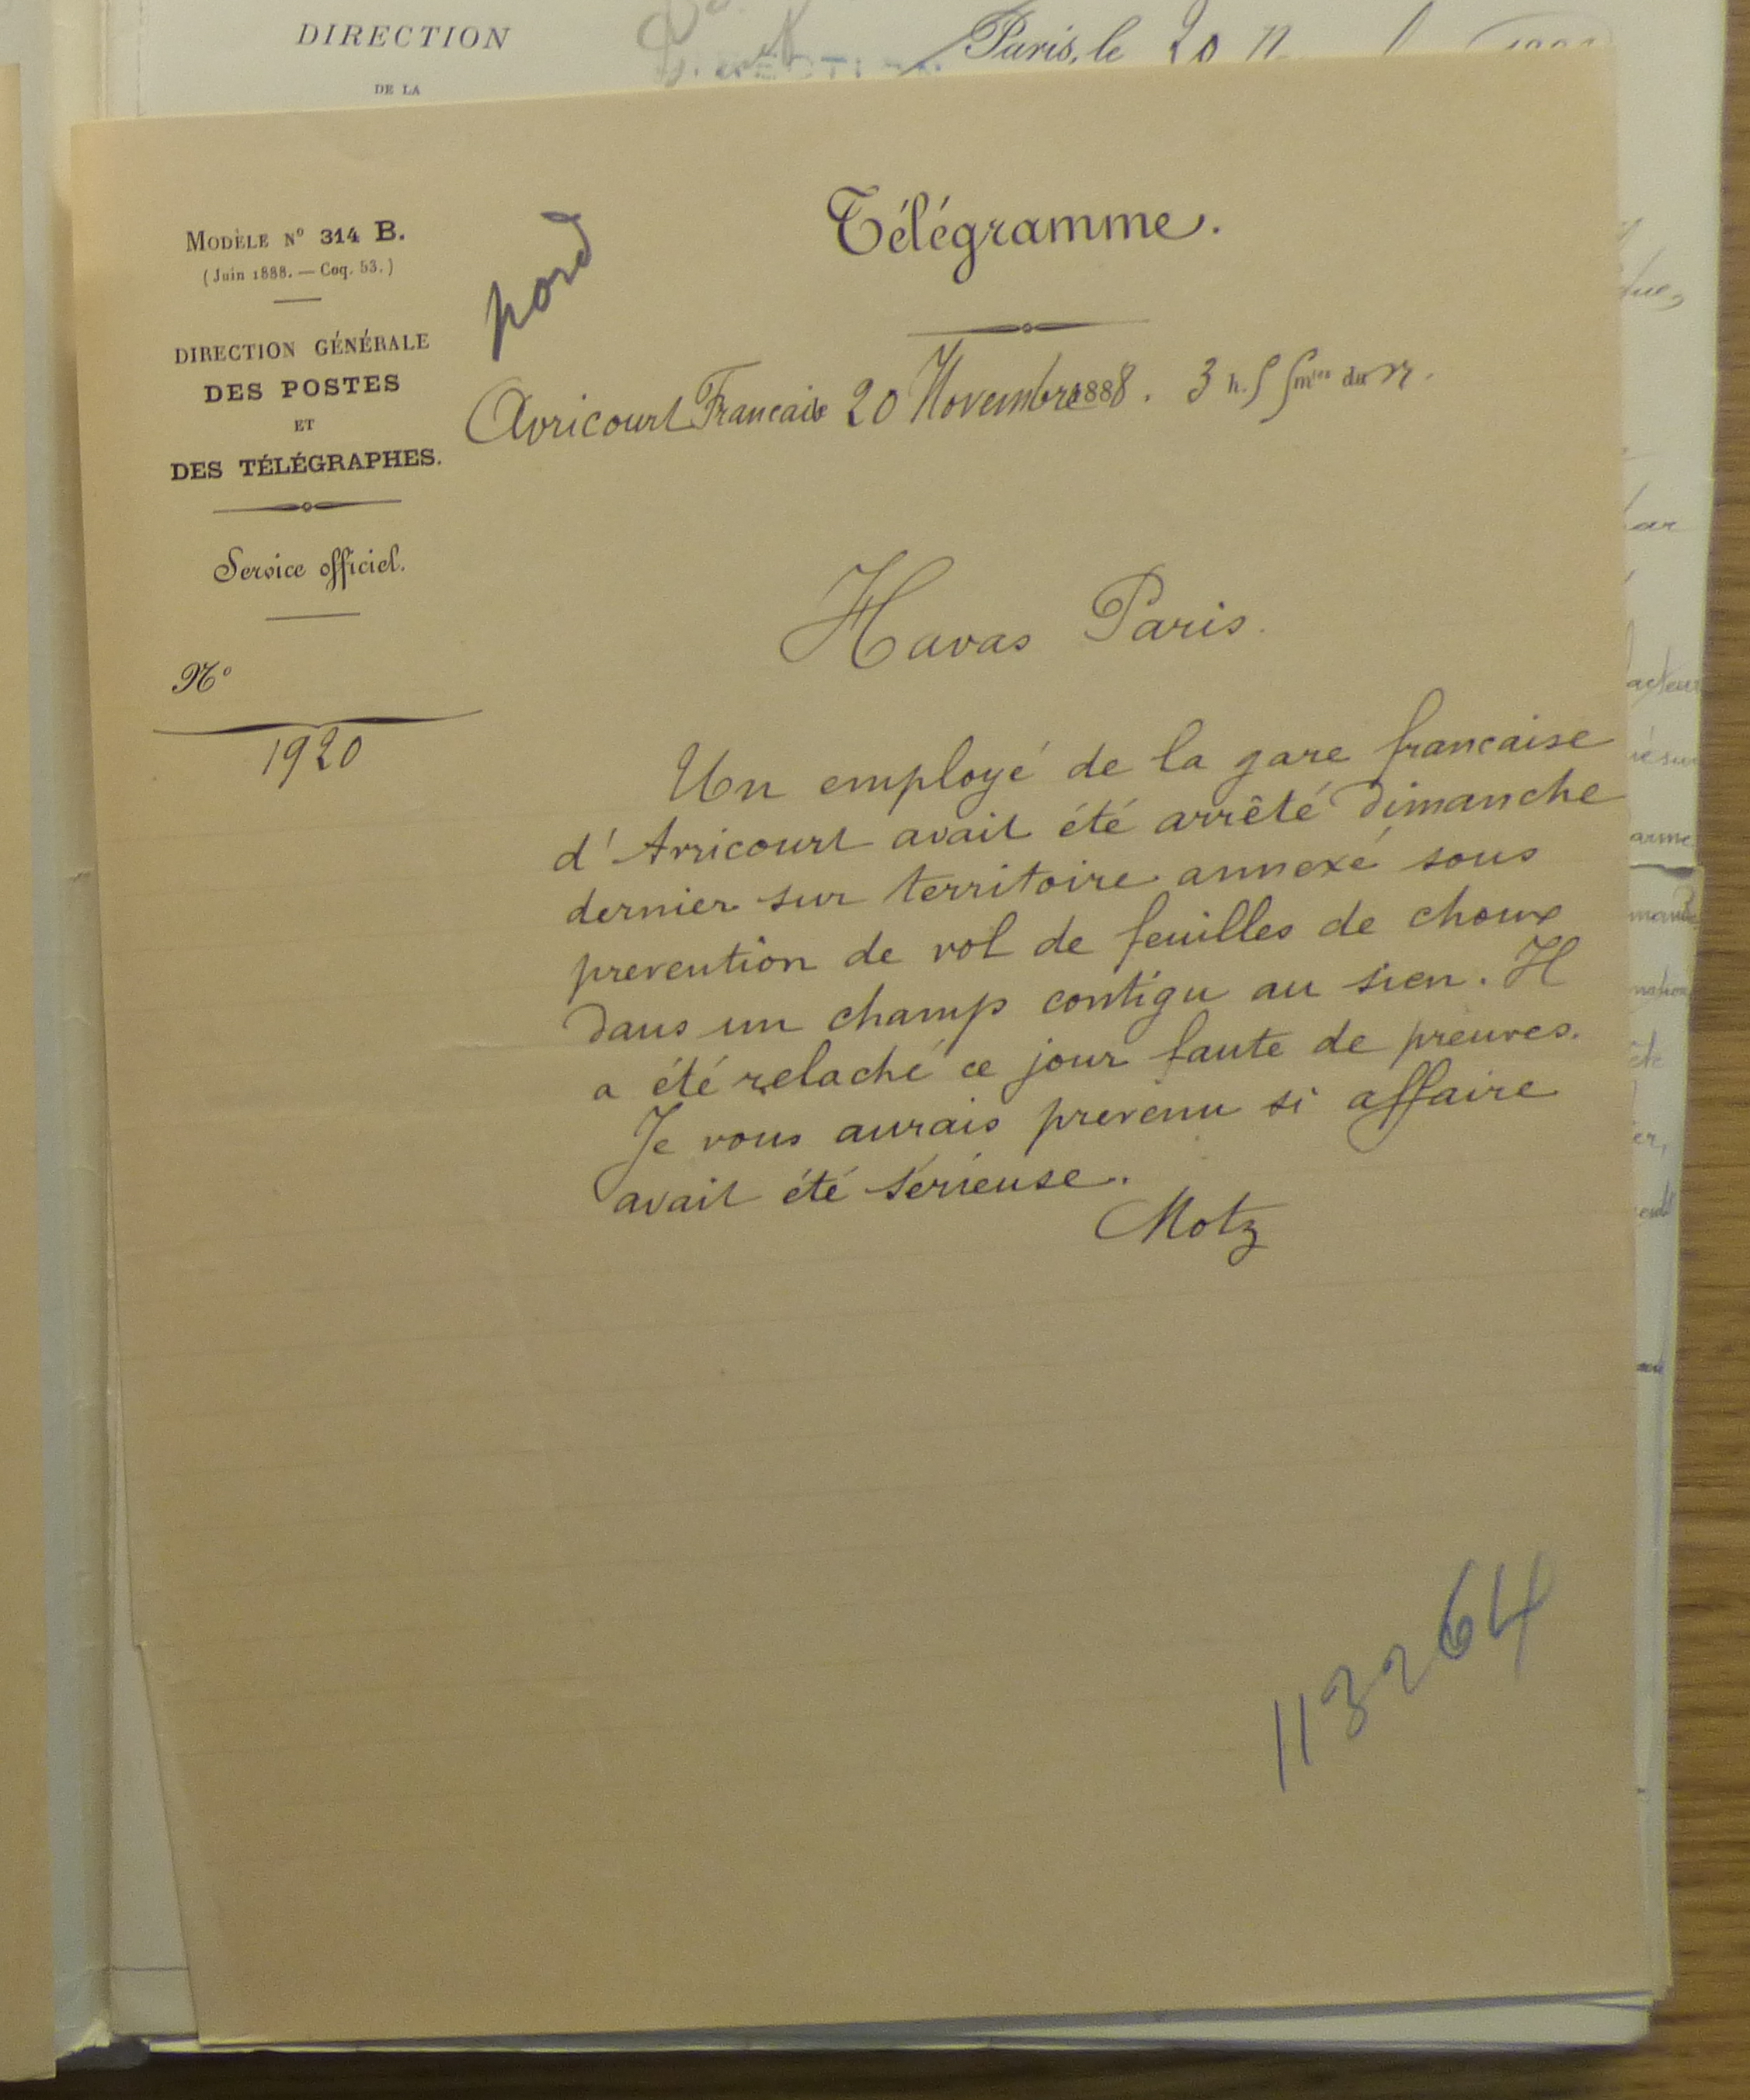 DIRECTION
DE LA
Paris, le 20
MODÈLE N° 314 B.
(Juin 1888. — Coq. 53.)
DIRECTION GÉNÉRALE
DES POSTES
ET
DES TÉLÉGRAPHES.
Service officiel.
N°
1920
nord
Télégramme.
Avricourt Francais 20 Novembre 1888. 3 h. 55 mtes du
Havas Paris.
Un employé de la gare francaise
d'Avricourt avait été arrêté dimanche
dernier sur territoire annexé sous
prevention de vol de feuilles de choux
dans un champ contigu au sien. Il
a été relaché ce jour faute de preuves.
Je vous aurais prevenu si affaire
avait été sérieuse.
Motz
113264